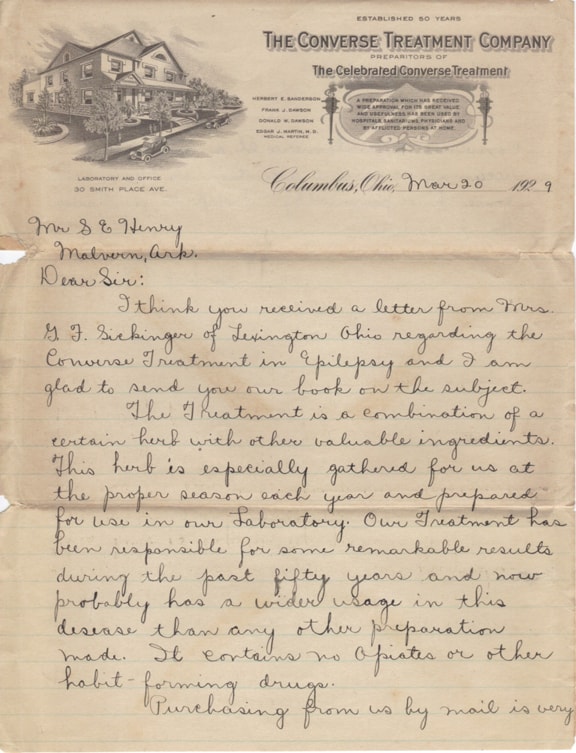 ESTABLISHED 50 YEARS
THE CONVERSE TREATMENT COMPANY
PREPARITORS OF
The Celebrated Converse Treatment
HERBERT E. SANDERSON
FRANK J. DAWSON
DONALD W. DAWSON
EDGAR J. MARTIN, M. D.
MEDICAL REFEREE
A PREPARATION WHICH HAS RECEIVED
WIDE APPROVAL FOR ITS GREAT VALUE
AND USEFULNESS HAS BEEN USED BY
HOSPITALS, SANITARIUMS, PHYSICIANS AND
BY AFFLICTED PERSONS AT HOME.
LABORATORY AND OFFICE
30 SMITH PLACE AVE.
Columbus, Ohio, Mar 20 1929
Mr S E Henry
Malvern, Ark.
Dear Sir:
I think you received a letter from Mrs.
G. F. Sickinger of Lexington Ohio regarding the
Converse Treatment in Epilepsy and I am
glad to send you our book on the subject.
The Treatment is a combination of a
certain herb with other valuable ingredients.
This herb is especially gathered for us at
the proper season each year and prepared
for use in our Laboratory. Our Treatment has
been responsible for some remarkable results
during the past fifty years and now
probably has a wider usage in this
disease than any other preparation
made. It contains no Opiates or other
habit-forming drugs.
Purchasing from us by mail is very